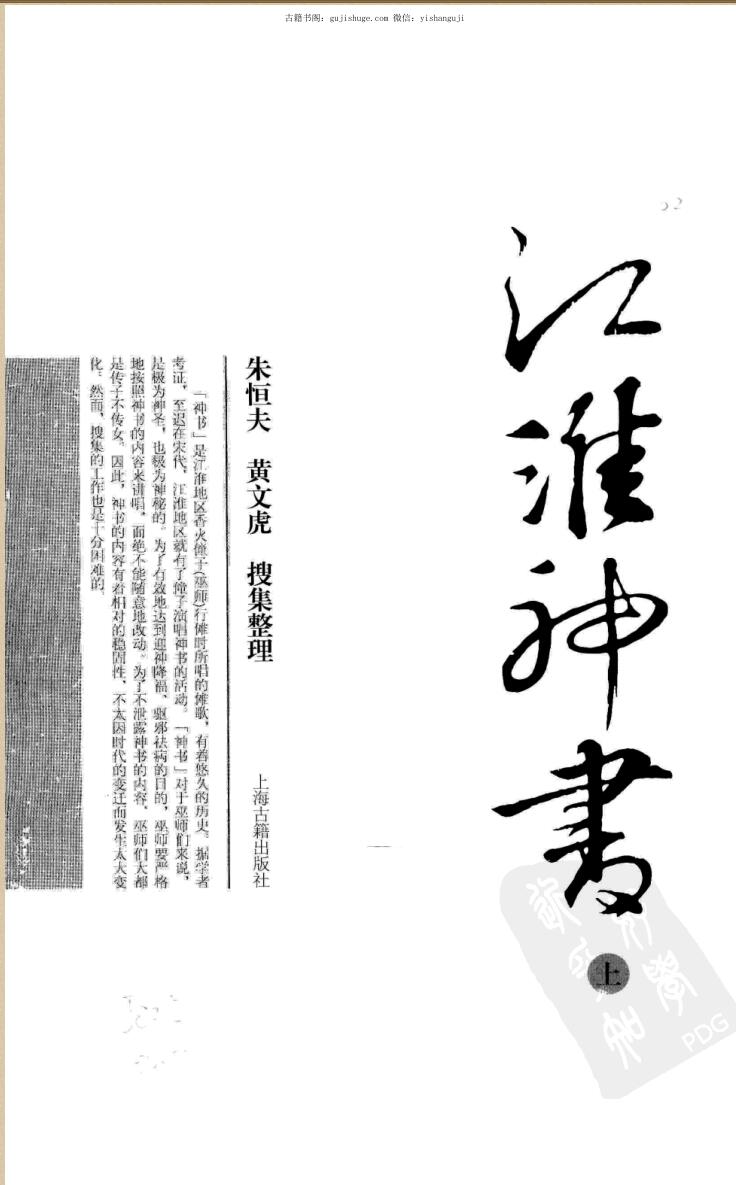 古籍书阁：gujishuge.com 微信：yishanguji
江淮神書
上
朱恒夫 黄文虎 搜集整理
上海古籍出版社
「神书」是江淮地区香火僮子（巫师）行傩时所唱的傩歌，有着悠久的历史。据学者
考证，至迟在宋代，江淮地区就有了僮子演唱神书的活动。「神书」对于巫师们来说，
是极为神圣，也极为神秘的。为了有效地达到迎神降福、驱邪祛病的目的，巫师要严格
地按照神书的内容来讲唱，而绝不能随意地改动。为了不泄露神书的内容，巫师们大都
是传子不传女。因此，神书的内容有着相对的稳固性，不太因时代的变迁而发生太大变
化。然而，搜集的工作也是十分困难的。
PDG